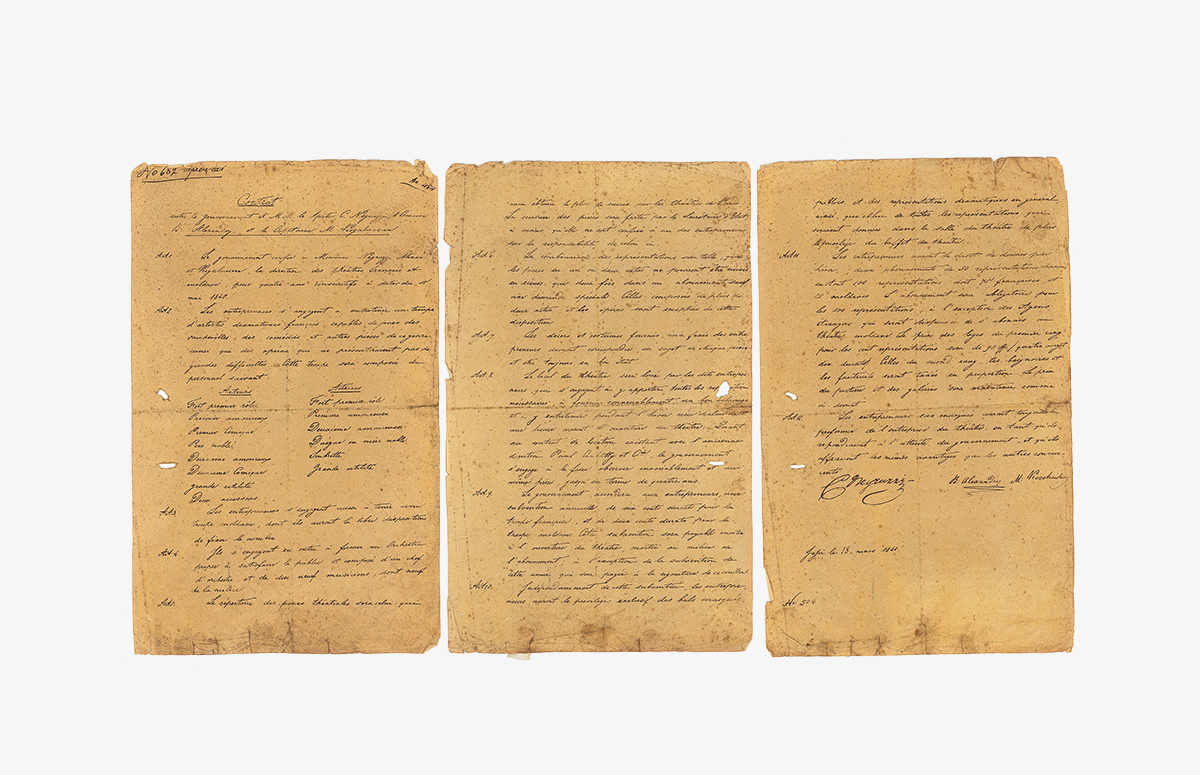 No 687
Contrat
entre le Gouvernement et M.M. le Spatar C. Negruzzi,
B. et le Capitaine M.
Art 1 Le gouvernement confie à Messieurs Negruzzi,
et la direction des théâtres français et
moldave pour quatre ans consécutifs à dater du 1
mai 1840.
Art 2 Les entrepreneurs s'engagent à entretenir un troupe
d'artistes dramatiques français, capables de jouer des
vaudevilles, des comédies et autres pièces de ce genre
ainsi que des operas que ne présenteraient pas de
grandes difficultés. Cette troupe sera composée du
personnel suivant.
Acteurs
Fort premier rôle
Premier amoureux
Premier Comique
Père noble
Deuxième amoureux
Deuxième Comique
grande utilité
Deux accessoires
Actrices
Fort premier rôle
Première amoureuse
Deuxième amoureuse
Duègne ou mère noble
Soubrette
Grande utilité
Art 3 Les entrepreneurs s'engagent aussi à tenir une
troupe moldave, dont ils auront la libre disposition
de fixer le nombre
Art 4 Ils s'engagent en outre à former un Orchestre
propre à satisfaire le public et composé d'un chef
d'orchestre et de dix neuf musiciens, dont neuf
de la milice
Art 5 Le répertoire des pièces théatrales sera celui qui
aura obtenu le plus de succès sur les théâtres de Paris
La censure des pièces sera faite par le Secrétaire d'Etat
à moins qu'elle ne soit confiée à un des entrepreneurs
sur la responsabilité de celui ci
Art 6 La des représentations sera telle, que
les pièces de un ou deux actes ne pourront être mises
en scène, que deux fois dans un abonnement, sauf
une demande spéciale. Celles composées de plus de
deux actes, et les operas sont exceptées de cette
disposition
Art 7 Les décors et costumes fournis aux frais des entre
preneurs devront correspondre au sujet de chaque pièce
et être toujours en bon état
Art 8 Le local du théâtre sera loué par les dits entrepre
neurs, qui s'engagent à y apporter toutes les réparations
nécessaires, à fournir convenablement un bon éclairage
et y entretenir pendant l'hiver une chaleur de
une heure avant l'ouverture du théâtre. Quant
au contrat de location existant avec l'ancienne
direction et le gouvernement
s'engage à le faire observer invariablement et au
même prix jusqu'au terme de quatre ans.
Art 9 Le gouvernement accordera aux entrepreneurs, une
subvention annuelle de six cents ducats pour la
troupe française, et de deux cents ducats pour la
troupe moldave. Cette subvention sera payable moitié
à l'ouverture du théâtre moitié au milieu de
l'abonnement, à l'exception de la subvention de
cette année, que sera payée à la signature de ce contrat
Art 10 Indépendamment de cette subvention les entrepre
neurs auront le privilège exclusif des bals masqués
publics et des représentations dramatiques en général
ainsi que celui de toutes les représentations qui
seraient données dans la salle du théâtre de plus
le privilège du buffet du théâtre
Art 11 Les entrepreneurs auront le droit de donner par
hiver, deux abonnements de 50 représentations chacun
en tout 100 représentations dont 75 françaises, et
25 moldaves. L'abonnement sera obligatoire pour
les 100 représentations, à l'exception des Agens
étrangers qui seront dispensés de s'abonner au
théâtre moldave. Le prix des loges du premier rang
pour les cent représentations sera de quatre vingt
dix ducats. Celles du second rang les baignoires et
les fauteuils seront taxés en proportion. Le prix
du parterre et des galeries sera maintenu comme
à
Art 12 Les entrepreneurs sus-indiqués auront toujours la
préférence de l'entreprise du théâtre, en tant qu'ils
répondraient à l'attente du gouvernement, et qu'ils
offriraient les mêmes avantages que les autres concur
rents
C Negruzzi B Alexandri M.
Jassi le 18. mars 1840.
No 304